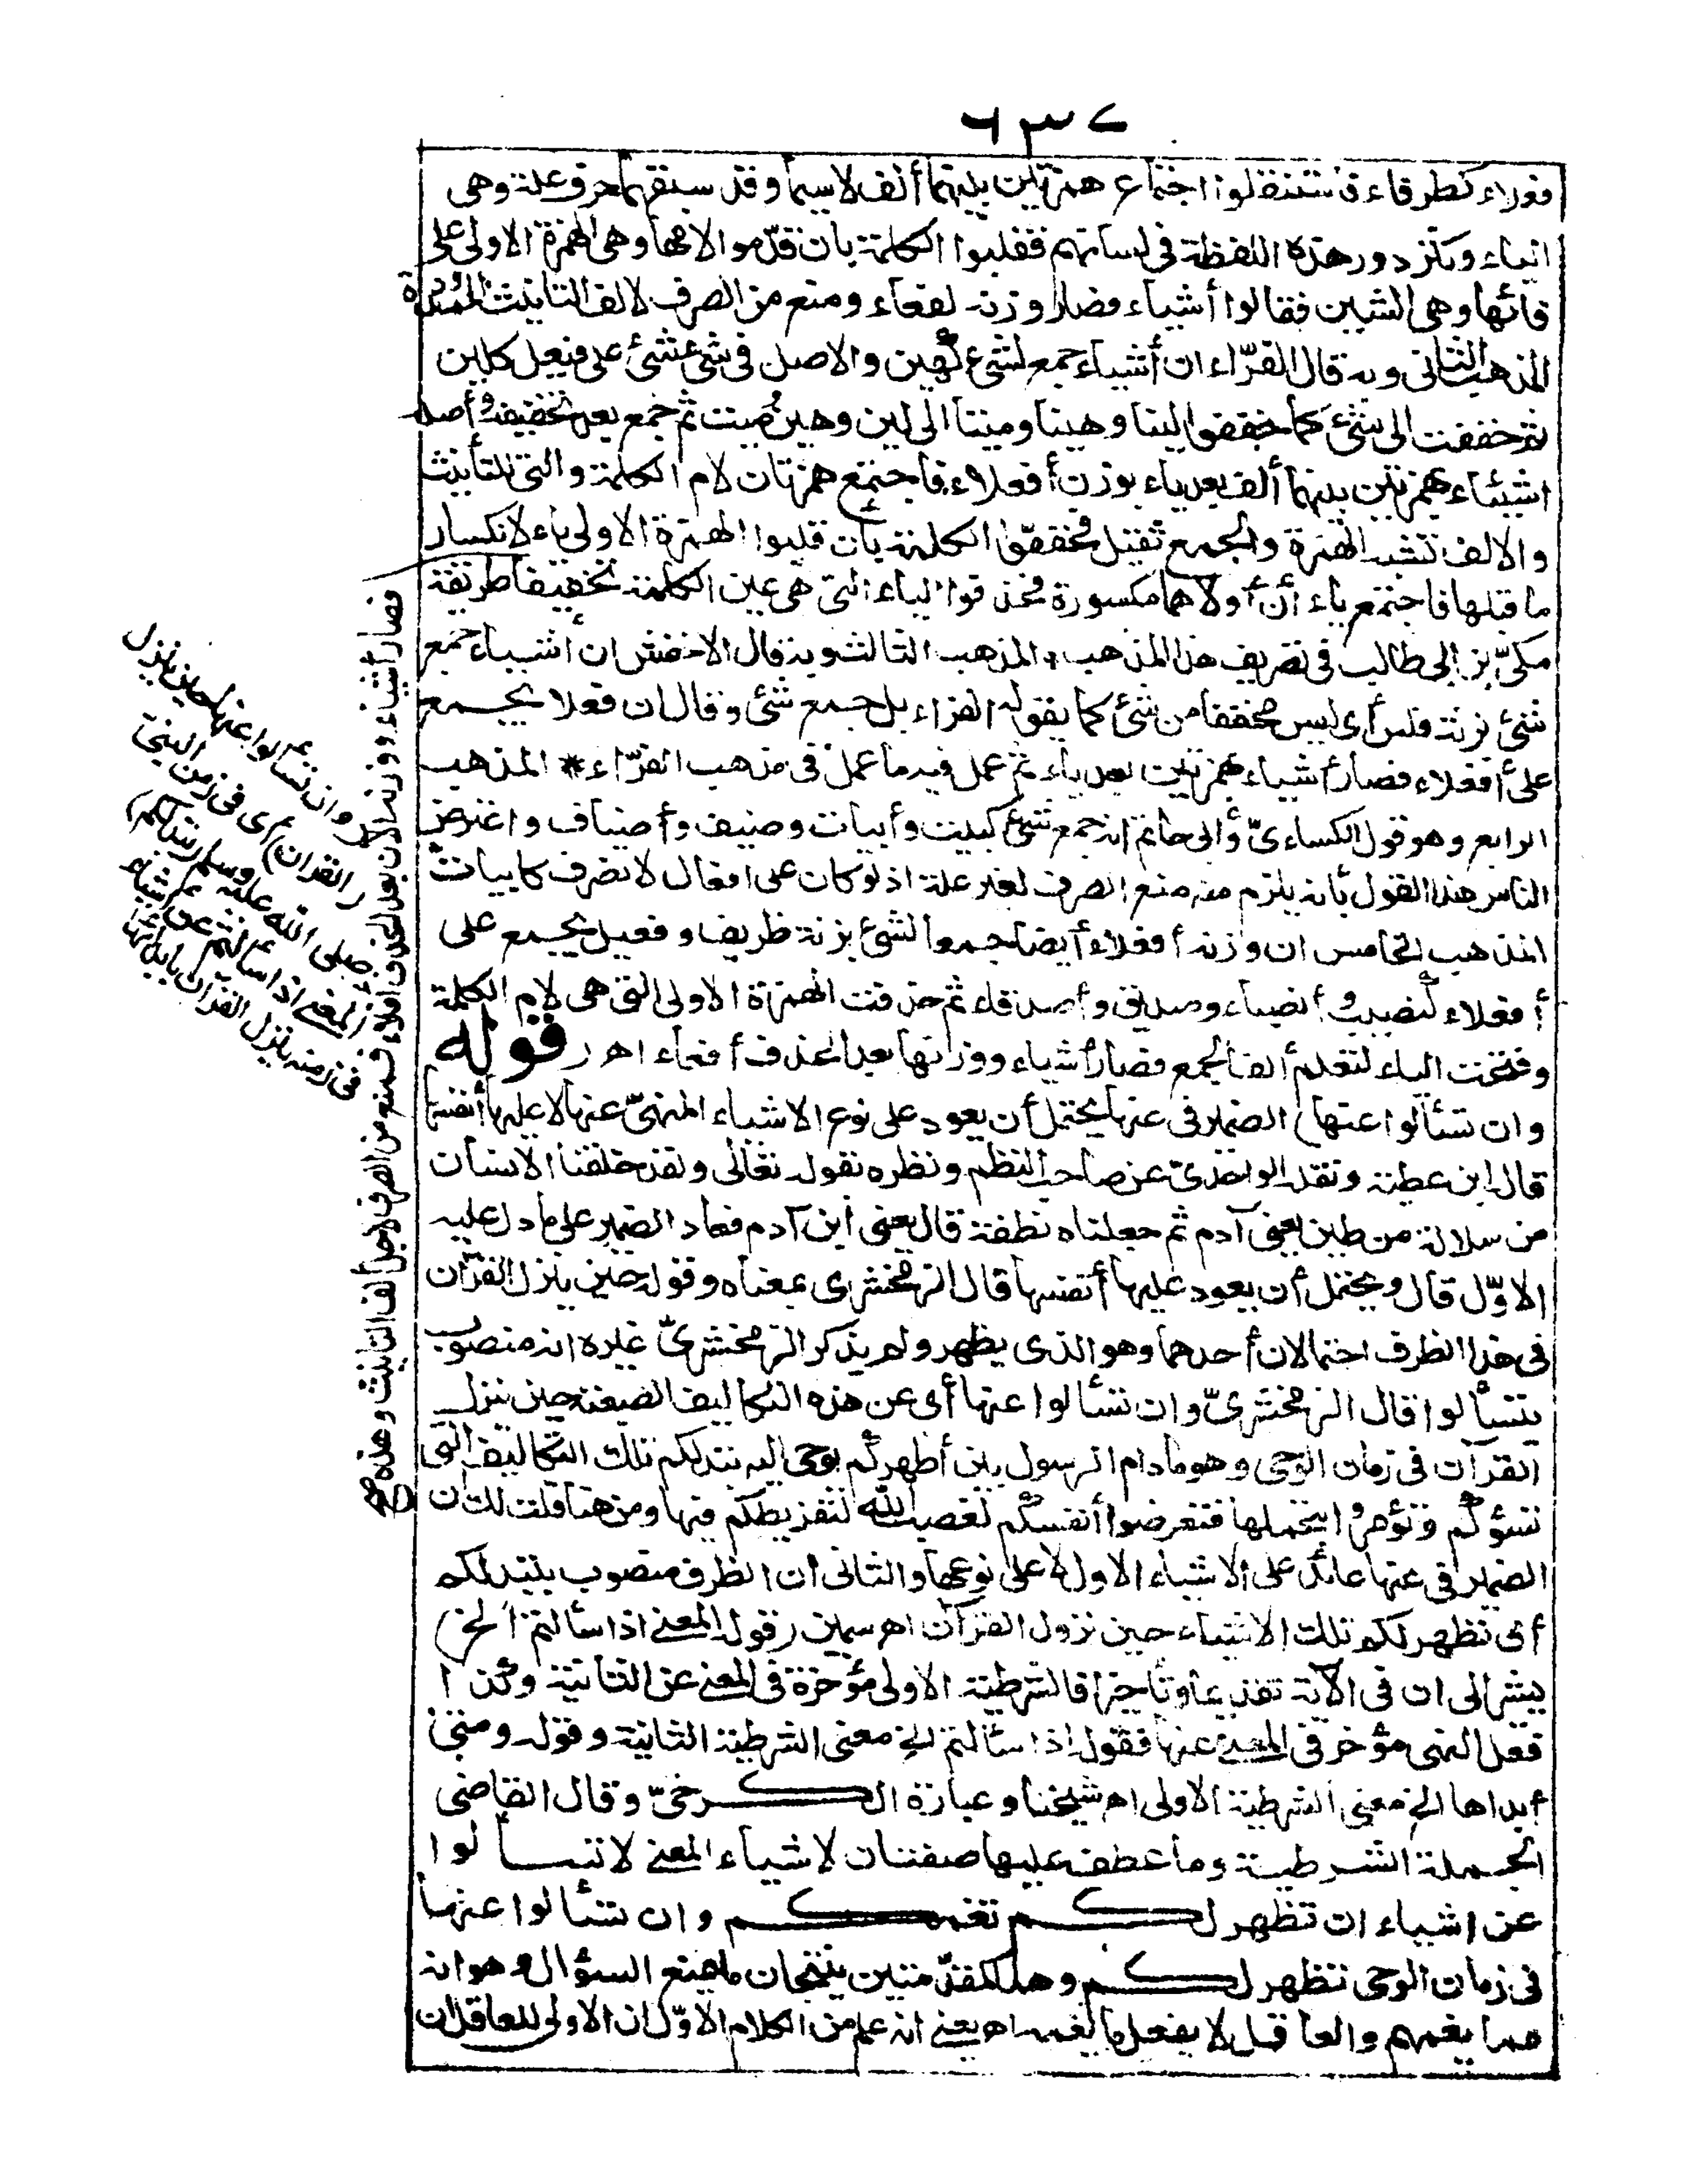 ٦٣٧
فعلاء كطرفاء فاستثقلوا اجتماع همزتين بينهما ألف لاسيما وقد سبقهما حرف علة وهي
الياء وكثر دور هذه اللفظة في لسانهم فقلبوا الكلمة بأن قدّموا لامها وهي الهمزة الاولى على
فائها وهي الشين فقالوا أشياء فصار وزنه لفعاء ومنع من الصرف لالف التأنيث الممدودة
المذهب الثاني وبه قال الفرّاء ان أشياء جمع لشيء كهين والاصل في شيء شيّئ على فيعل كلين
ثم خففت الى شيء كما خففوا لينا وهينا وميتا الى لين وهين وميت ثم جمع بعد تخفيفه وأصله
اشيئاء بهمزتين بينهما ألف بعد ياء بوزن أفعلاء فاجتمع همزتان لام الكلمة والتي للتأنيث
والالف تشبه الهمزة والجمع ثقيل فخففوا الكلمة بأن قلبوا الهمزة الاولى ياء لانكسار
ما قبلها فاجتمع ياء ان أولاهما مكسورة فحذفوا الياء التي هي عين الكلمة تخفيفا طريقة
مكيّ بن ابي طالب في تصريف هذا المذهب * المذهب الثالث وبه قال الاخفش ان أشياء جمع
شيء بزنة فلس أي ليس مخففا من شيئ كما يقوله الفراء بل جمع شيء وقال ان فعلا يجمع
على أفعلاء فصار أشيئاء بهمزتين بعد ياء ثم عمل فيه ما عمل في مذهب الفرّاء * المذهب
الرابع وهو قول الكساءيّ وأبي حاتم انه جمع شيء كبيت وأبيات وضيف وأضياف واعترض
الناس هذا القول بأنه يلزم منه منع الصرف لغير علة اذ لو كان على افعال لانصرف كأبيات
المذهب الخامس ان وزنه أفعلاء أيضا جمعا لشيء بزنة ظريف وفعيل يجمع على
أفعلاء كنصيب وأنصباء وصديق وأصدقاء ثم حذفت الهمزة الاولى التي هي لام الكلمة
وفتحت الياء لتسلم ألف الجمع فصار أشياء ووزنها بعد الحذف أفعاء اهـ (قوله
وان تسألوا عنها) الضمير في عنها يحتمل أن يعود على نوع الاشياء المنهيّ عنها لا عليها أنفسها
قال ابن عطية ونقله الواحديّ عن صاحب النظم ونظره بقوله تعالى ولقد خلقنا الانسان
من سلالة من طين يعني آدم ثم جعلناه نطفة قال يعني ابن آدم فعاد الضمير على ما دل عليه
الاوّل قال ويحتمل أن يعود عليها أنفسها قال الزمخشرى بمعناه وقوله حين ينزل القرآن
في هذا الظرف احتمالان أحدهما وهو الذي يظهر ولم يذكر الزمخشريّ غيره انه منصوب
بتسألوا قال الزمخشريّ وان تسألوا عنها أي عن هذه التكاليف الصعبة حين ينزل
القرآن في زمان الوحي وهو مادام الرسول بين أظهركم يوحى اليه تبد لكم تلك التكاليف التي
تسؤكم وتؤمروا بتحملها فتعرضوا أنفسكم لغضب الله لتفريطكم فيها ومن هنا قلت لك ان
الضمير في عنها عائد على الاشياء الاول لا على نوعها والثاني ان الظرف منصوب بتبد لكم
أي تظهر لكم تلك الاشياء حين نزول القرآن اهـ سمين (قوله المعنى اذا سألتم الخ)
يشير الى ان في الآية تقديما وتأخيرا فالشرطية الاولى مؤخرة في المعنى عن الثانية وكذا
فعل النهى مؤخر في المعنى عنها فقوله اذا سألتم الخ معنى الشرطية الثانية وقوله ومتى
أبداها الخ معنى الشرطية الاولى اهـ شيخنا وعبارة الكرخيّ وقال القاضي
الجملة الشرطية وما عطف عليها صفتان لاشياء المعنى لا تسألوا
عن اشياء ان تظهر لكم تغمكم وان تسألوا عنها
في زمان الوحي تظهر لكم وهما كمقدّمتين ينتجان ما يمنع السؤال وهو انه
مما يغمهم والعاقل لا يفعل ما يغمه اهـ يعني انه علم من الكلام الاوّل ان الاولى للعاقل ان
فصار أشياء ووزنه الآن بعد الحذف افلاء فمنع من الصرف لاجل ألف التأنيث وهذه صح
(وان تسألوا عنها حين ينزل
القرآن) أي في زمن النبيّ
صلى الله عليه وسلم (تبد لكم)
المعنى اذا سألتم عن أشياء
في زمنه ينزل القرآن بابدائها